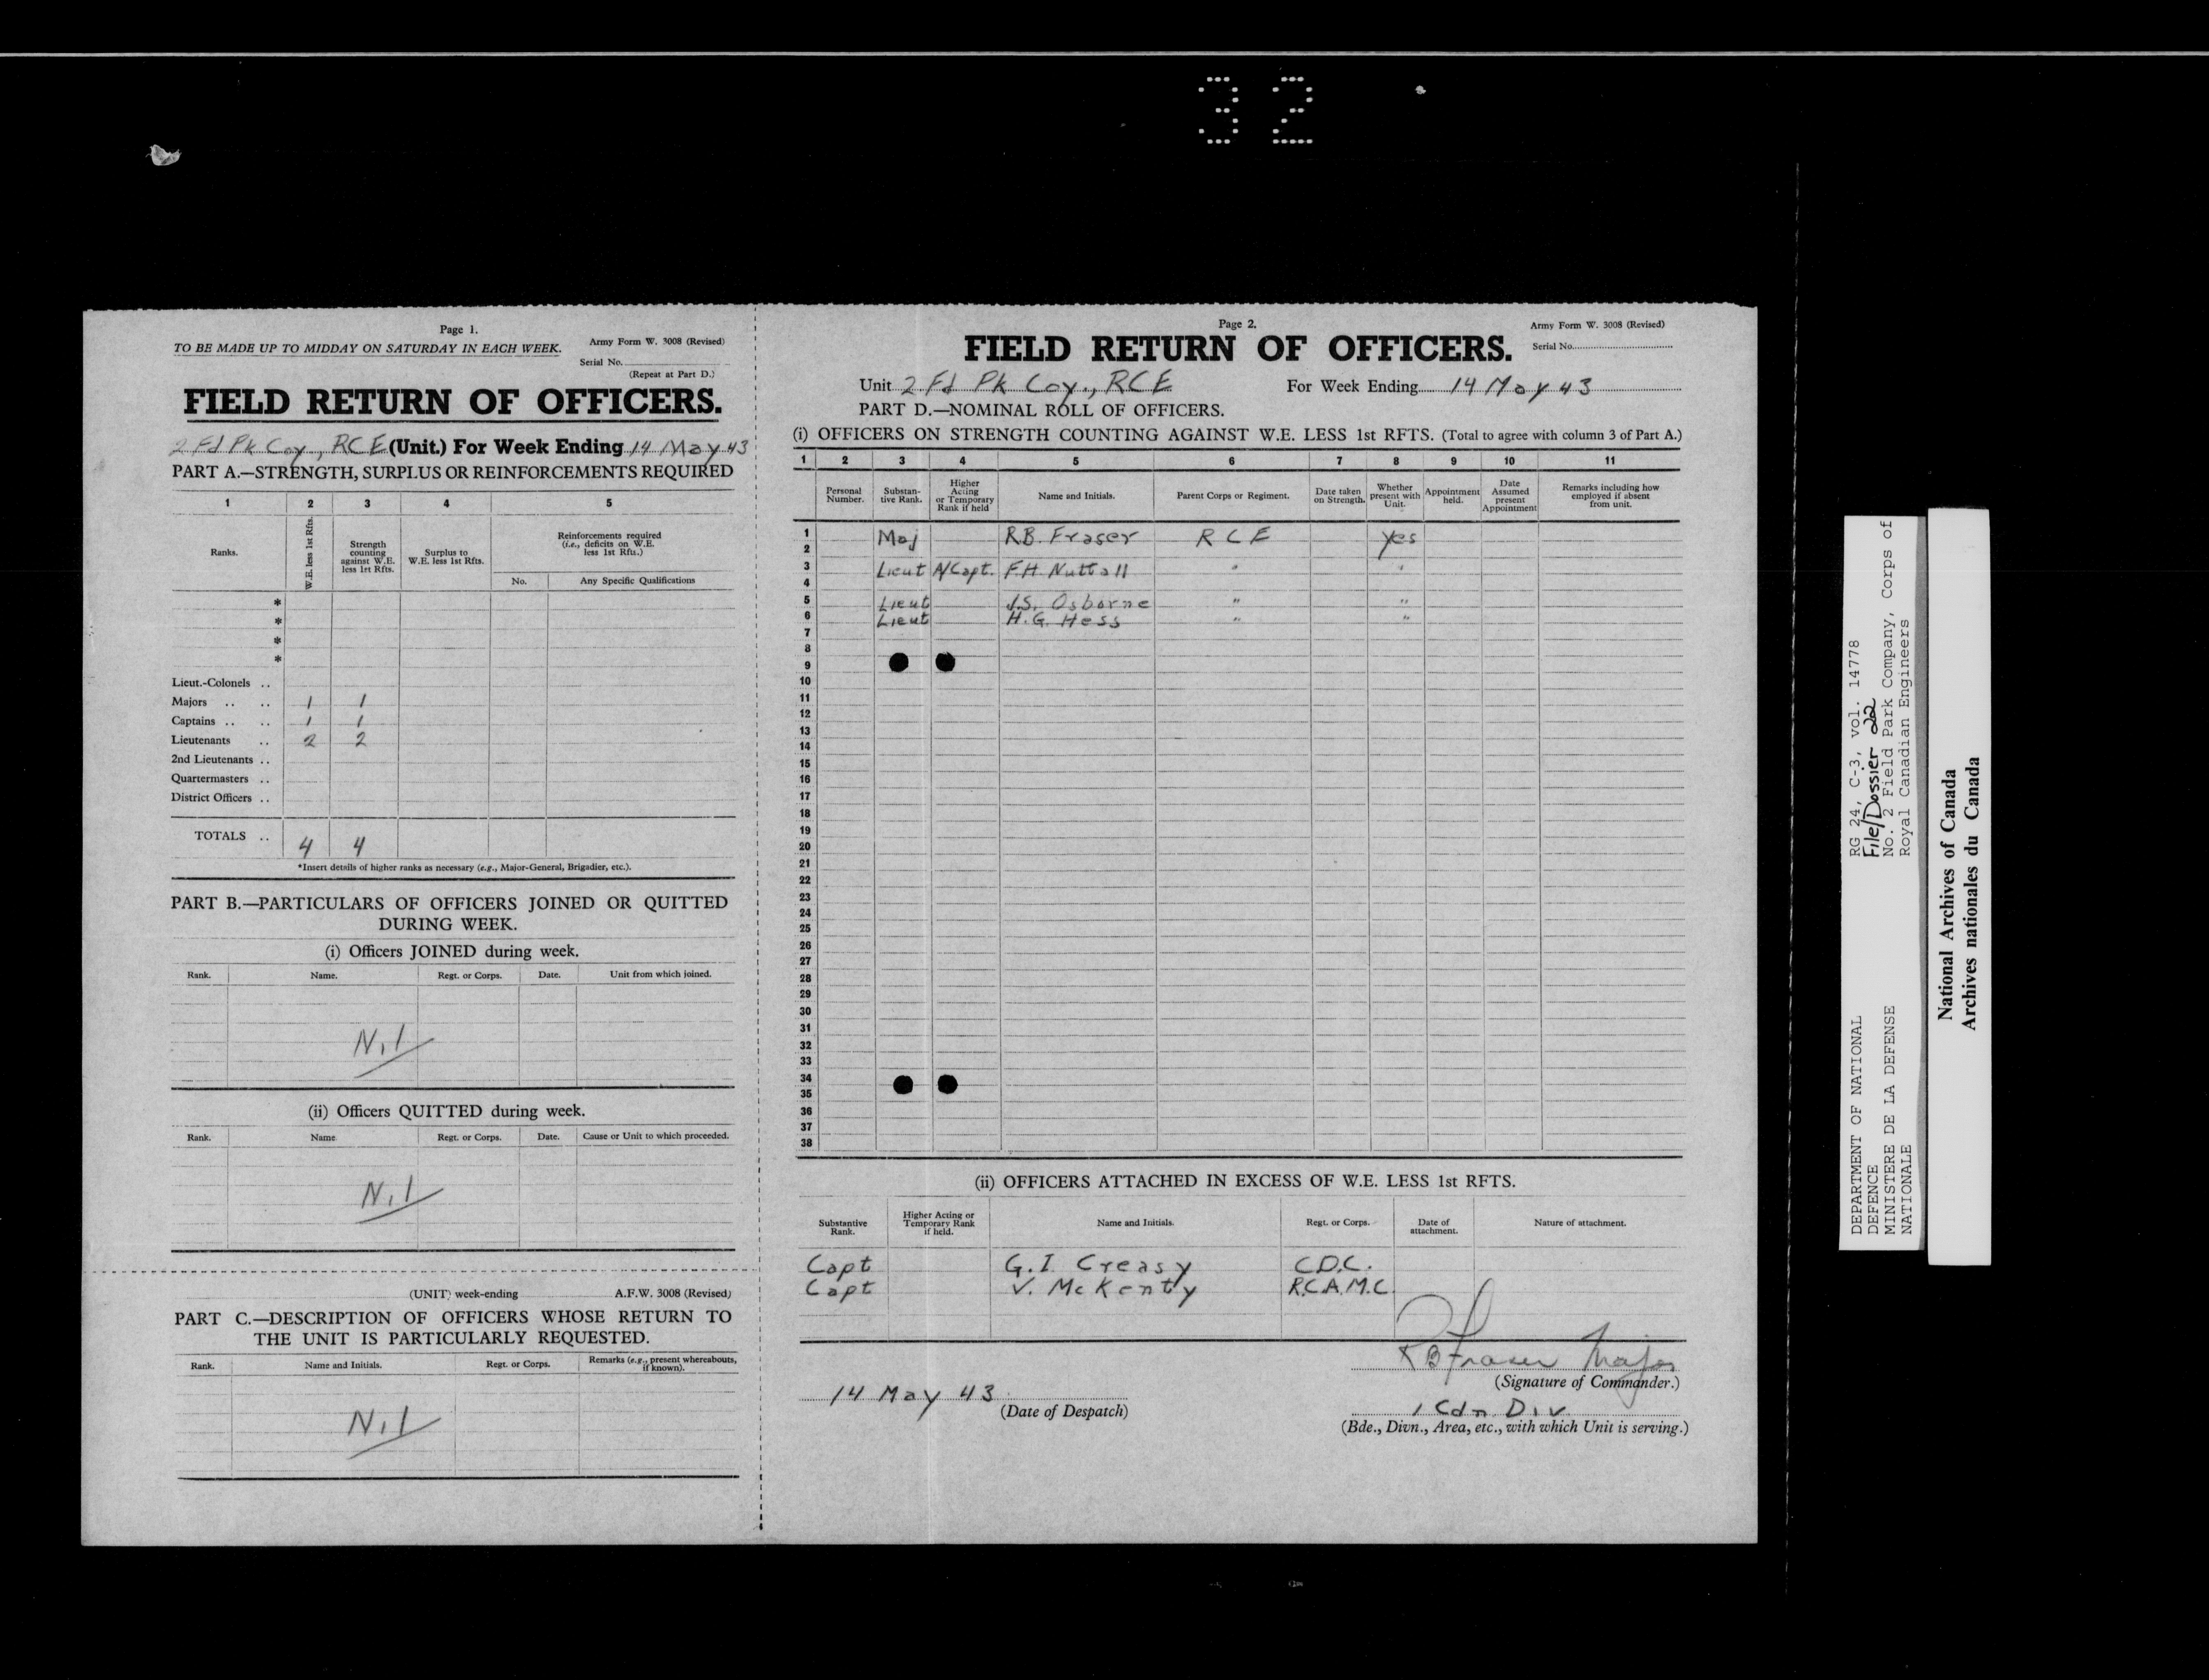 32
Page 1.
TO BE MADE UP TO MIDDAY ON SATURDAY IN EACH WEEK.
Army Form W. 3008 (Revised)
Serial No.
(Repeat at Part D.)
FIELD RETURN OF OFFICERS.
2 Fd Pk Coy, RCE (Unit.) For Week Ending 14 May 43
PART A.—STRENGTH, SURPLUS OR REINFORCEMENTS REQUIRED
1 2 3 4 5
Ranks.
W.E. less 1st Rfts.
Strength counting against W.E. less 1st Rfts.
Surplus to W.E. less 1st Rfts.
Reinforcements required (i.e., deficits on W.E. less 1st Rfts.)
No. Any Specific Qualifications
*
*
*
*
Lieut.-Colonels ..
Majors .. .. 1 1
Captains .. .. 1 1
Lieutenants .. 2 2
2nd Lieutenants ..
Quartermasters ..
District Officers ..
TOTALS .. 4 4
*Insert details of higher ranks as necessary (e.g., Major-General, Brigadier, etc.).
PART B.—PARTICULARS OF OFFICERS JOINED OR QUITTED
DURING WEEK.
(i) Officers JOINED during week.
Rank. Name. Regt. or Corps. Date. Unit from which joined.
Nil
(ii) Officers QUITTED during week.
Rank. Name Regt. or Corps. Date. Cause or Unit to which proceeded.
Nil
(UNIT) week-ending A.F.W. 3008 (Revised)
PART C.—DESCRIPTION OF OFFICERS WHOSE RETURN TO
THE UNIT IS PARTICULARLY REQUESTED.
Rank. Name and Initials. Regt. or Corps. Remarks (e.g., present whereabouts, if known).
Nil
Page 2.
Army Form W. 3008 (Revised)
FIELD RETURN OF OFFICERS.
Serial No.
Unit 2 Fd Pk Coy., RCE For Week Ending 14 May 43
PART D.—NOMINAL ROLL OF OFFICERS.
(i) OFFICERS ON STRENGTH COUNTING AGAINST W.E. LESS 1st RFTS. (Total to agree with column 3 of Part A.)
1 2 3 4 5 6 7 8 9 10 11
Personal Number.
Substan-tive Rank.
Higher Acting or Temporary Rank if held
Name and Initials.
Parent Corps or Regiment.
Date taken on Strength.
Whether present with Unit.
Appointment held.
Date Assumed present Appointment
Remarks including how employed if absent from unit.
1 Maj R.B. Fraser R C E Yes
2
3 Lieut A/Capt. F.H. Nuttall " "
4
5 Lieut J.S. Osborne " "
6 Lieut H.G. Hess " "
7
8
9
10
11
12
13
14
15
16
17
18
19
20
21
22
23
24
25
26
27
28
29
30
31
32
33
34
35
36
37
38
(ii) OFFICERS ATTACHED IN EXCESS OF W.E. LESS 1st RFTS.
Substantive Rank.
Higher Acting or Temporary Rank if held.
Name and Initials.
Regt. or Corps.
Date of attachment.
Nature of attachment.
Capt G.I. Creasy C.D.C.
Capt V. McKenty R.C.A.M.C.
RBFraser Major
(Signature of Commander.)
14 May 43
(Date of Despatch)
1 Cdn Div
(Bde., Divn., Area, etc., with which Unit is serving.)
DEPARTMENT OF NATIONAL
DEFENCE
MINISTERE DE LA DEFENSE
NATIONALE
RG 24, C-3, vol. 14778
File/Dossier 22
No. 2 Field Park Company, Corps of
Royal Canadian Engineers
National Archives of Canada
Archives nationales du Canada